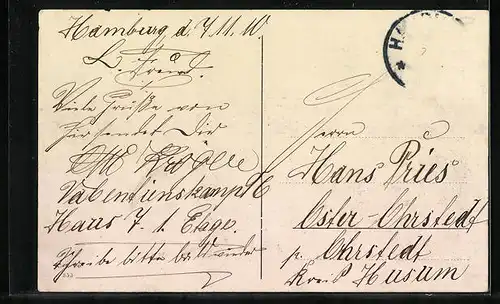 Hamburg d. 7.11.10.
L. Freund.
Viele Grüße von
hier sendet Dir
Otto Krögel
Valentienskamp 6
Haus 7. 1. Etage.
Schreibe bitte bald wieder
Herrn
Hans Pries
Oster-Ohrstedt
p. Ohrstedt
Kreiß Husum